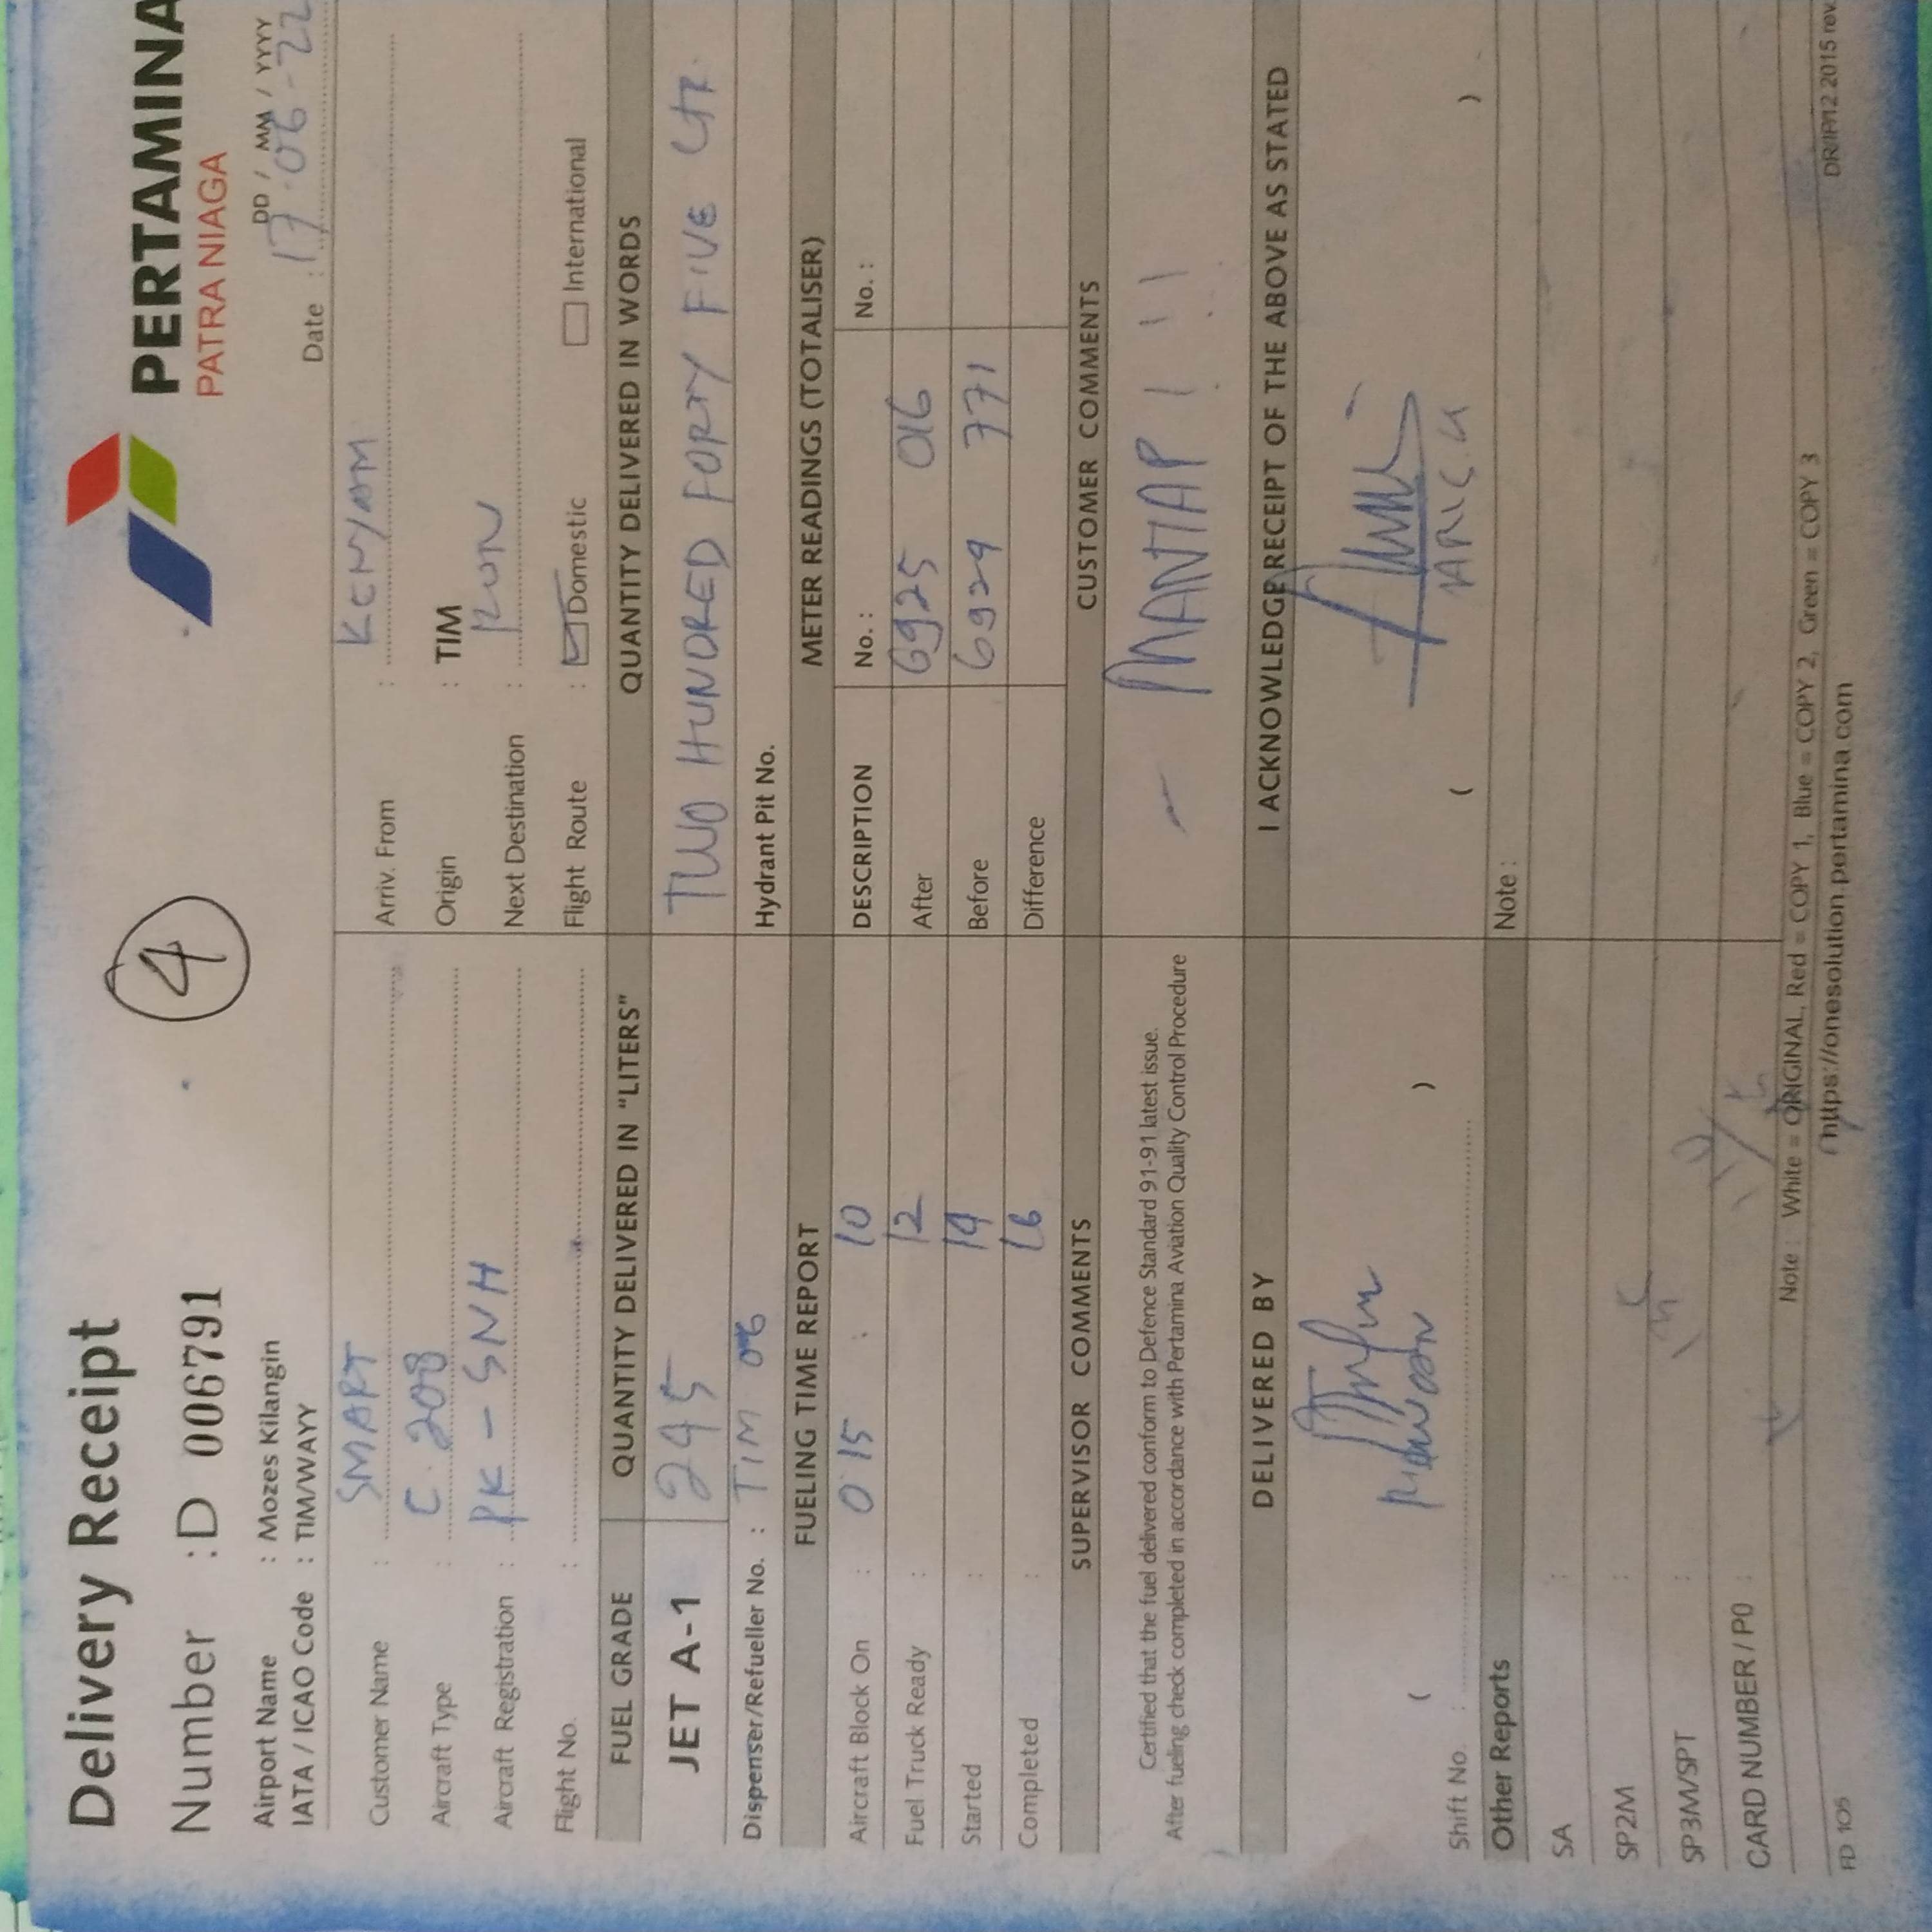 Delivery Receipt
PERTAMINA
PATRA NIAGA
Number :D 006791
4
Airport Name : Mozes Kilangin
IATA / ICAO Code : TIM/WAYY
DD / MM / YYYY
Date : 17-06-22
Customer Name : SMART
Arriv. From : KENYAM
Aircraft Type : C. 208
Origin : TIM
Aircraft Registration : PK - SNH
Next Destination :
Flight No. :
Flight Route : Domestic International
FUEL GRADE QUANTITY DELIVERED IN "LITERS" QUANTITY DELIVERED IN WORDS
JET A-1 245 TWO HUNDRED FORTY FIVE LTR.
Dispenser/Refueller No. : TIM 06 Hydrant Pit No.
FUELING TIME REPORT METER READINGS (TOTALISER)
Aircraft Block On : 015 10 DESCRIPTION No. : No. :
Fuel Truck Ready : 12 After 6925 016
Started : 14 Before 6924 771
Completed : 16 Difference
SUPERVISOR COMMENTS CUSTOMER COMMENTS
Certified that the fuel delivered conform to Defence Standard 91-91 latest issue.
After fueling check completed in accordance with Pertamina Aviation Quality Control Procedure
- MANTAP ! !!
DELIVERED BY I ACKNOWLEDGE RECEIPT OF THE ABOVE AS STATED
( ) ( )
Shift No. :
Other Reports Note :
SA :
SP2M :
SP3M/SPT :
CARD NUMBER / PO :
Note : White = ORIGINAL, Red = COPY 1, Blue = COPY 2, Green = COPY 3
FD 105 https://onesolution.pertamina.com DR/IP/12 2015 rev.